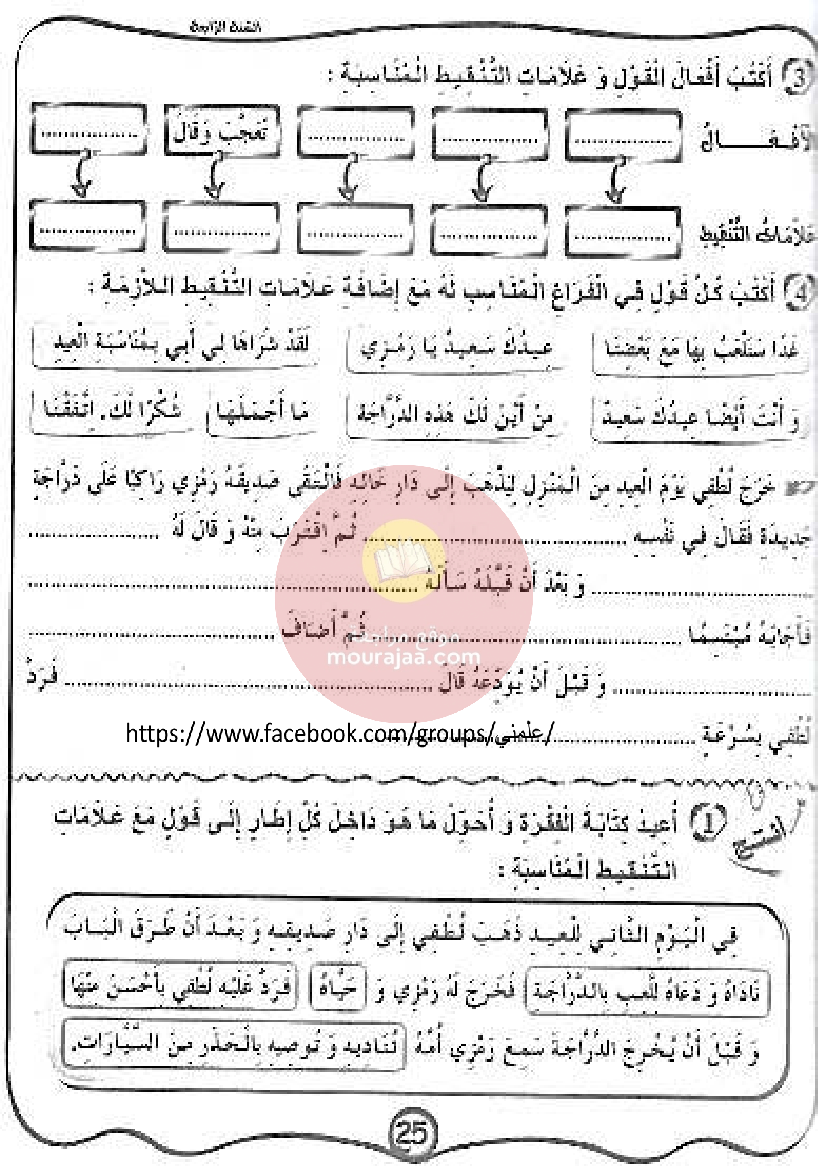 السنة الرابعة
3 أَكْتُبُ أَفْعَالَ الْقَوْلِ وَ عَلَامَاتِ التَّنْقِيطِ الْمُنَاسِبَةِ :
الْأَفْعَـــــالُ ................ ................ ................ تَعَجَّبَ وَقَالَ ................
عَلَامَاتُ التَّنْقِيطِ ................ ................ ................ ................ ................
4 أَكْتُبُ كُلَّ قَوْلٍ فِي الْفَرَاغِ الْمُنَاسِبِ لَهُ مَعَ إِضَافَةِ عَلَامَاتِ التَّنْقِيطِ اللَّازِمَةِ :
غَدًا سَنَلْعَبُ بِهَا مَعَ بَعْضِنَا عِيدُكَ سَعِيدٌ يَا رَمْزِي لَقَدْ شَرَاهَا لِي أَبِي بِمُنَاسَبَةِ الْعِيدِ
وَ أَنْتَ أَيْضًا عِيدُكَ سَعِيدٌ مِنْ أَيْنَ لَكَ هَذِهِ الدَّرَّاجَةُ مَا أَجْمَلَهَا شُكْرًا لَكَ. اِتَّفَقْنَا
خَرَجَ لُطْفِي يَوْمَ الْعِيدِ مِنَ الْمَنْزِلِ لِيَذْهَبَ إِلَى دَارِ خَالِهِ فَالْتَقَى صَدِيقَهُ رَمْزِي رَاكِبًا عَلَى دَرَّاجَةٍ
جَدِيدَةٍ فَقَالَ فِي نَفْسِهِ ................ ثُمَّ اِقْتَرَبَ مِنْهُ وَ قَالَ لَهُ ................
................ وَ بَعْدَ أَنْ قَبَّلَهُ سَأَلَهُ ................
فَأَجَابَهُ مُبْتَسِمًا ................ ثُمَّ أَضَافَ ................
................ وَ قَبْلَ أَنْ يُوَدِّعَهُ قَالَ ................ فَرَدَّ
لُطْفِي بِسُرْعَةٍ ................
موقع مراجعة
mourajaa.com
https://www.facebook.com/groups/علمني/
أنتج 1 أُعِيدُ كِتَابَةَ الْفِقْرَةِ وَ أُحَوِّلُ مَا هُوَ دَاخِلَ كُلِّ إِطَارٍ إِلَى قَوْلٍ مَعَ عَلَامَاتِ
التَّنْقِيطِ الْمُنَاسِبَةِ :
فِي الْيَوْمِ الثَّانِي لِلْعِيدِ ذَهَبَ لُطْفِي إِلَى دَارِ صَدِيقِهِ وَ بَعْدَ أَنْ طَرَقَ الْبَابَ
نَادَاهُ وَ دَعَاهُ لِلَّعِبِ بِالدَّرَّاجَةِ فَخَرَجَ لَهُ رَمْزِي وَ حَيَّاهُ فَرَدَّ عَلَيْهِ لُطْفِي بِأَحْسَنَ مِنْهَا
وَ قَبْلَ أَنْ يُخْرِجَ الدَّرَّاجَةَ سَمِعَ رَمْزِي أُمَّهُ تُنَادِيهِ وَ تُوصِيهِ بِالْحَذَرِ مِنَ السَّيَّارَاتِ.
25